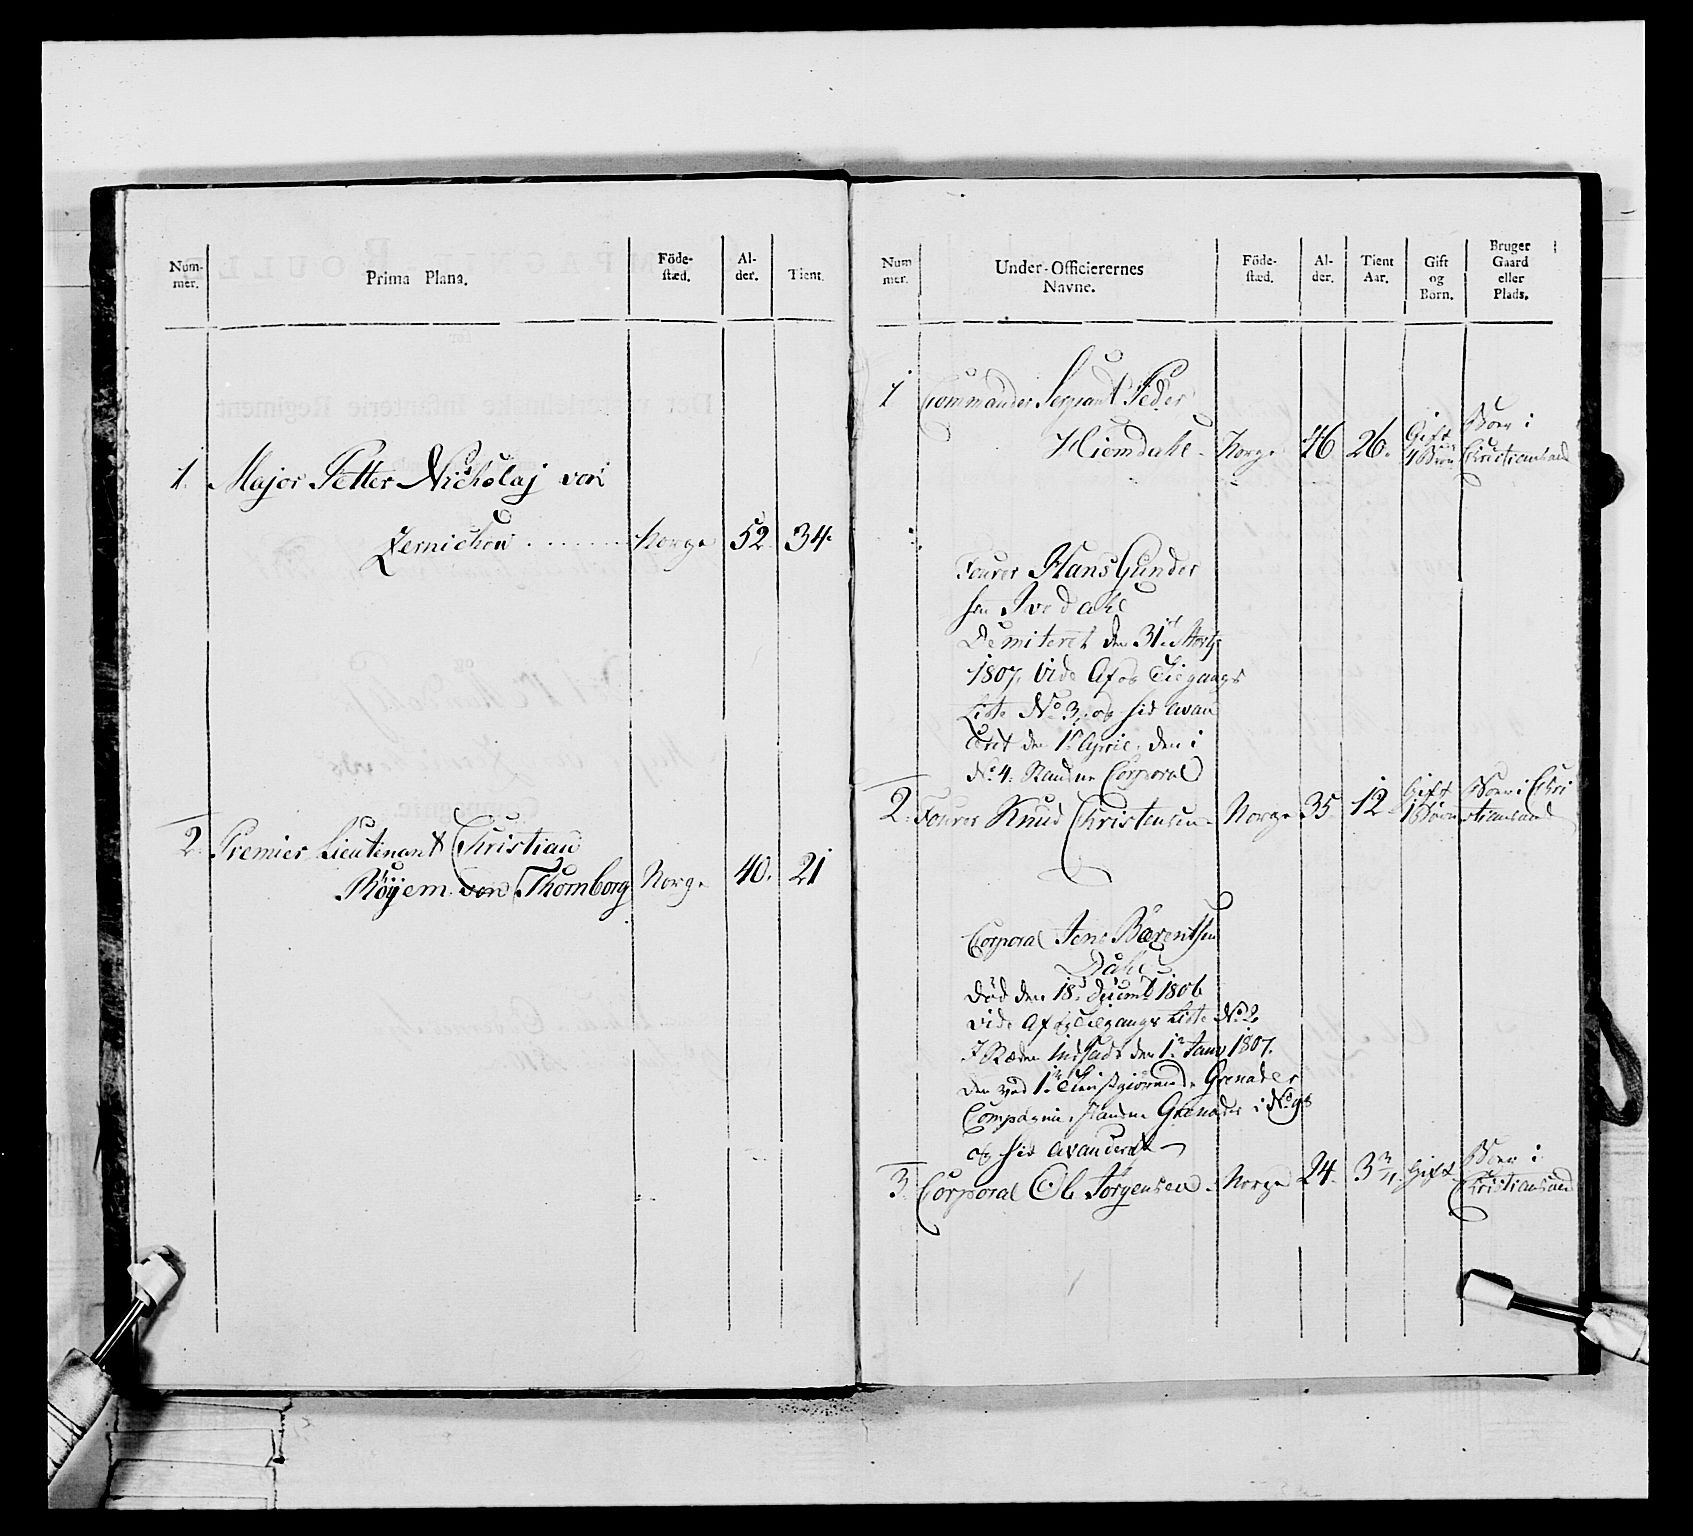 Num-
mer.
Prima Plana.
Föde-
stæd.
Al-
der.
Tient.
1. Major Petter Nicholaj von
Zernichow . . . . . . . Norge 52. 34.
2. Premier Lieutinant Christian
Röÿem von Thomborg Norge 40. 21
Num
mer.
Under-Officierernes
Navne.
Föde-
stæd.
Al-
der.
Tient
Aar.
Gift
og
Börn.
Bruger
Gaard
eller
Plads.
1 Commander Sergeant Peder
Hiemdahl - Norge 46 26. Gift 4 Börn Boer i Christiansand
Fourer Hans Gunder
sen Ivedahl
Demiteret den 31te Marty
1807, vide Af og Tilgangs
Liste No. 3, og hid avan
ceret den 1te April, den i
No. 4. Standne Corporal
2. Fourer Knud Christensen - Norge 35. 12. Gift 1 Börn Boer i Chri
stiansand
Corporal Jens Bærentsen
Dahl
död den 18de Decembr 1806
vide Af og Tilgangs Liste No. 2.
I Steden indsadt den 1te Janv 1807.
den ved 1te Grenader
Compagnie Standne Grenader i No. 98
og hid avanceret
3. Corporal Ole Jörgensen - Norge 24. 3 3/4. Gift Boer i
Christiansand